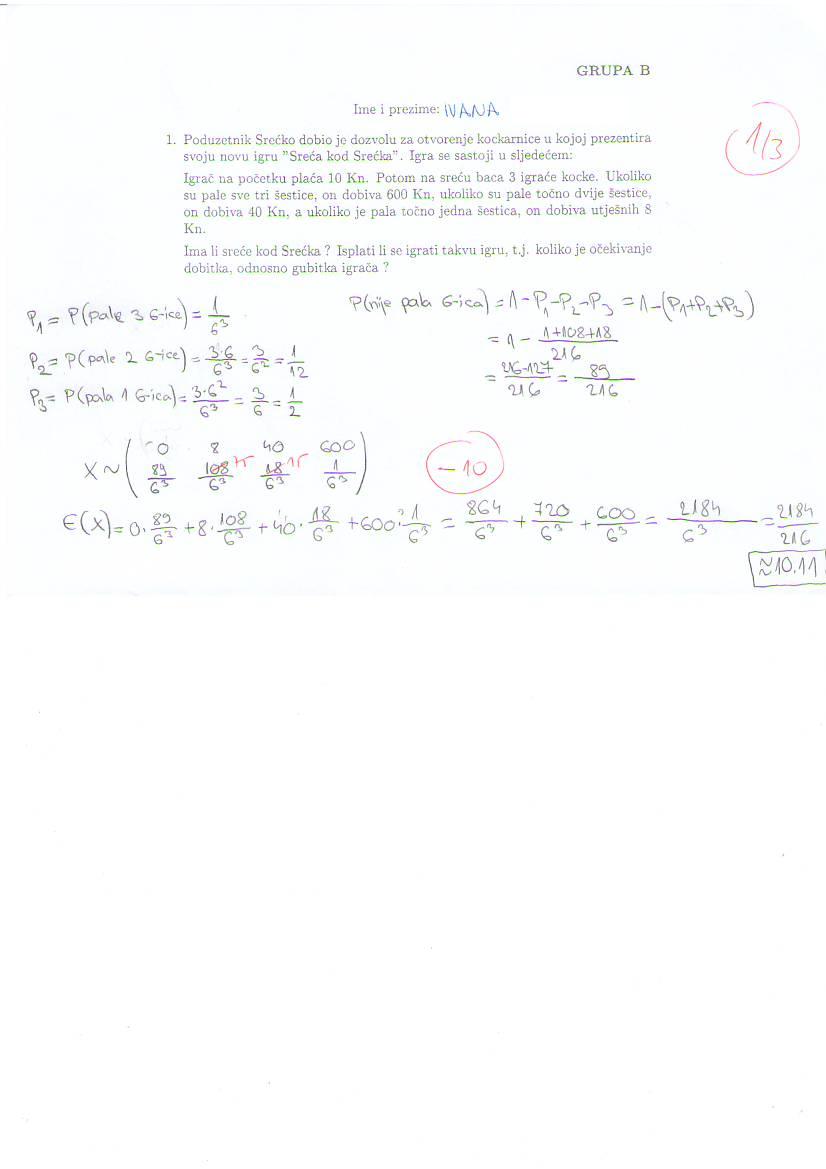 GRUPA B
Ime i prezime: IVANA
1/3
1. Poduzetnik Srećko dobio je dozvolu za otvorenje kockarnice u kojoj prezentira
svoju novu igru "Sreća kod Srećka". Igra se sastoji u sljedećem:
Igrač na početku plaća 10 Kn. Potom na sreću baca 3 igraće kocke. Ukoliko
su pale sve tri šestice, on dobiva 600 Kn, ukoliko su pale točno dvije šestice,
on dobiva 40 Kn, a ukoliko je pala točno jedna šestica, on dobiva utješnih 8
Kn.
Ima li sreće kod Srećka ? Isplati li se igrati takvu igru, t.j. koliko je očekivanje
dobitka, odnosno gubitka igrača ?
P₁ = P(pale 3 6-ice) = 1/6³
P₂ = P(pale 2 6-ice) = 3·6/6³ = 3/6² = 1/12
P₃ = P(pala 1 6-ica) = 3·6²/6³ = 3/6 = 1/2
P(nije pala 6-ica) = 1-P₁-P₂-P₃ = 1-(P₁+P₂+P₃)
= 1 - 1+108+18/216
= 216-127/216 = 89/216
X ~ ( 0 8 40 600
89/6³ 108/6³ 18/6³ 1/6³ )
-10
E(X) = 0·89/6³ + 8·108/6³ + 40·18/6³ + 600·1/6³ = 864/6³ + 720/6³ + 600/6³ = 2184/6³ = 2184/216
≈10.11